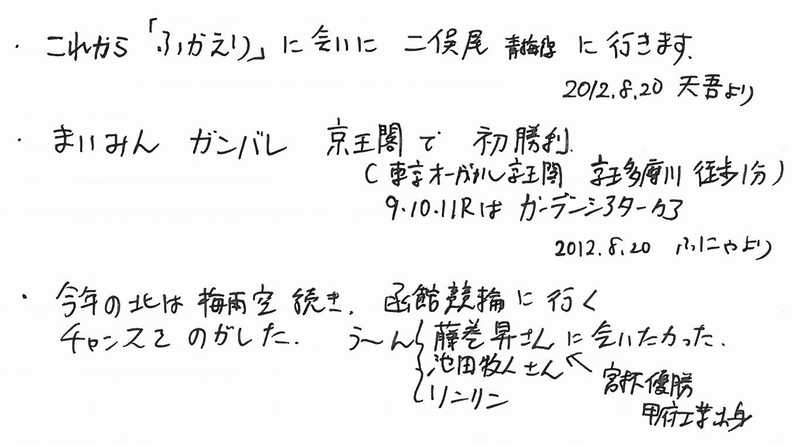 ・これから「ふかえり」に会いに 二俣尾 青梅線 に行きます.
2012.8.20 天吾より
・まいみん ガンバレ 京王閣で 初勝利.
(東京オーヴァル京王閣 京王多摩川 徒歩1分)
9.10.11Rは ガーデンシアターカラ
2012.8.20 ふにゃより
・今年の北は 梅雨空 続き. 函館競輪に行く
チャンスを のがした. う〜ん 藤巻昇さん に会いたかった.
池田牧人さん ← 宮杯優勝
リンリン 甲府工業出身